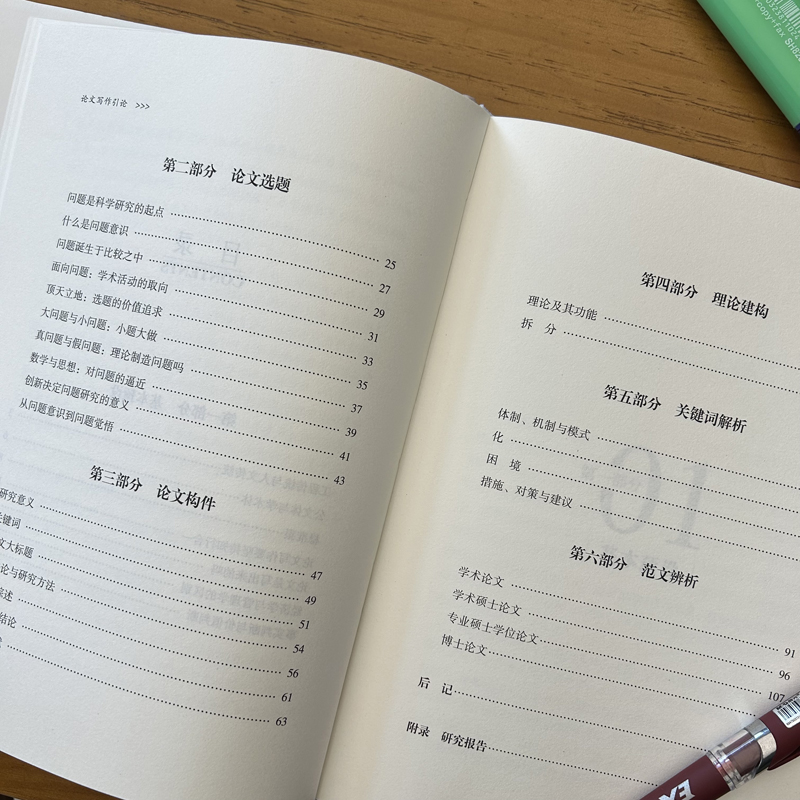 论文写作引论 >>>
第二部分 论文选题
问题是科学研究的起点 …… 25
什么是问题意识 …… 27
问题诞生于比较之中 …… 29
面向问题：学术活动的取向 …… 31
顶天立地：选题的价值追求 …… 33
大问题与小问题：小题大做 …… 35
真问题与假问题：理论制造问题吗 …… 37
数学与思想：对问题的逼近 …… 39
创新决定问题研究的意义 …… 41
从问题意识到问题觉悟 …… 43
第三部分 论文构件
研究意义 …… 47
键词 …… 49
文大标题 …… 51
论与研究方法 …… 54
述 …… 56
结论 …… 61
…… 63
第四部分 理论建构
理论及其功能 ……
拆 分 ……
第五部分 关键词解析
体制、机制与模式 ……
化 ……
困 境 ……
措施、对策与建议 ……
第六部分 范文辨析
学术论文 …… 91
学术硕士论文 …… 96
专业硕士学位论文 …… 107
博士论文 ……
后 记 ……
附录 研究报告 ……
copy+fax
EX